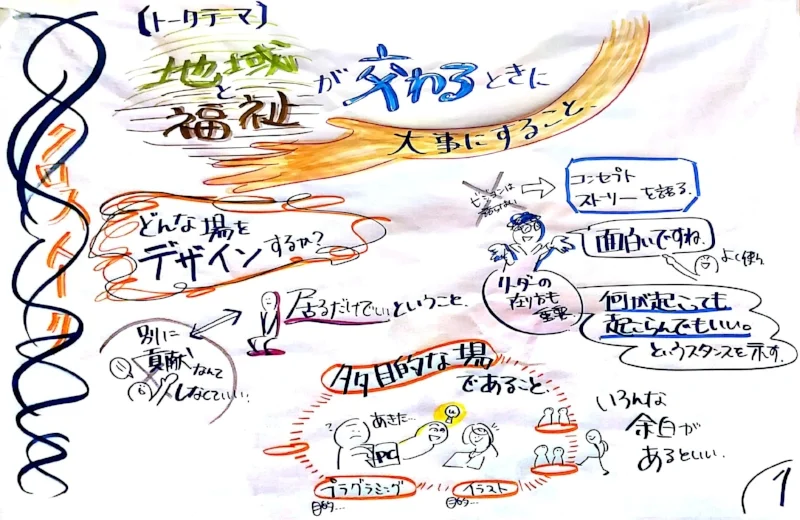 【トークテーマ】
地域
と
福祉
が交わるときに
大事にすること、
クロストーク
どんな場を
デザインするか?
ビジョンは
語らない
コンセプト
ストーリーを語る。
面白いですね。
よく使う
リーダーの
在り方も
重要
何が起こっても
起こらんでもいい。
というスタンスを示す。
居るだけでいいということ、
別に
貢献なんて
しなくていい!
多目的な場
であること、
?
あきた…
PC
プラグラミング
目的…
イラスト
目的…
いろんな
余白が
あるといい。
1